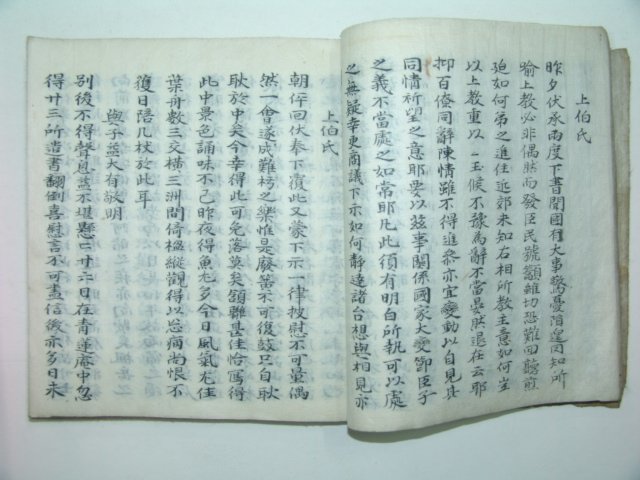 上伯氏
昨夕伏承兩度下書聞國有大事驚憂惶罔知所
喩上教必非偶然而發臣民號籲雖切恐難回聽煎
迫如何弟之進住近郊未知右相所教主意如何豈
以上教重以 玉候不豫爲辭不當晏然退在云耶
抑百僚同辭陳情雖不得進參亦宜變動以自見其
同情祈望之意耶要以玆事關係國家大變節臣子
之義不當處之如常耶凡此須有明白所執可以處
之無疑幸更商議下示如何靜邊諸台想與相見亦
上伯氏
朝伻回伏奉下覆此又蒙下示一律披慰不可量偶
然一會遂成難 之樂惟是廢 不可復鼓只自耿
耿於中矣今幸得此可免落莫矣頷聯甚佳恰寫得
此中景色誦味不已昨夜得魚尤多今日風氣尤佳
葉舟數三交橫三洲間倚楹縱觀得以忘病尚恨不
復日陪几杖於此耳
與子益大有敬明
別後不得聲息益不堪懸懸二十六日在青蓮庵中忽
得廿三所造書翻倒喜慰言不可盡信後亦多日未